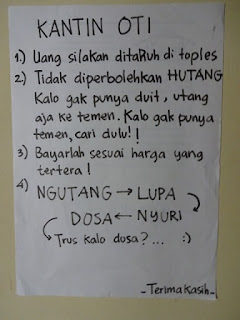 KANTIN OTI
1.) Uang silakan ditaRuh di toples
2.) Tidak diperbolehkan HUTANG
Kalo gak punya duit, utang
aja ke temen. Kalo gak punya
temen, cari dulu!!
3.) Bayarlah sesuai harga yang
tertera!
4) NGUTANG → LUPA
DOSA ← NYURI
Trus kalo dosa?... :)
-Terima kasih-